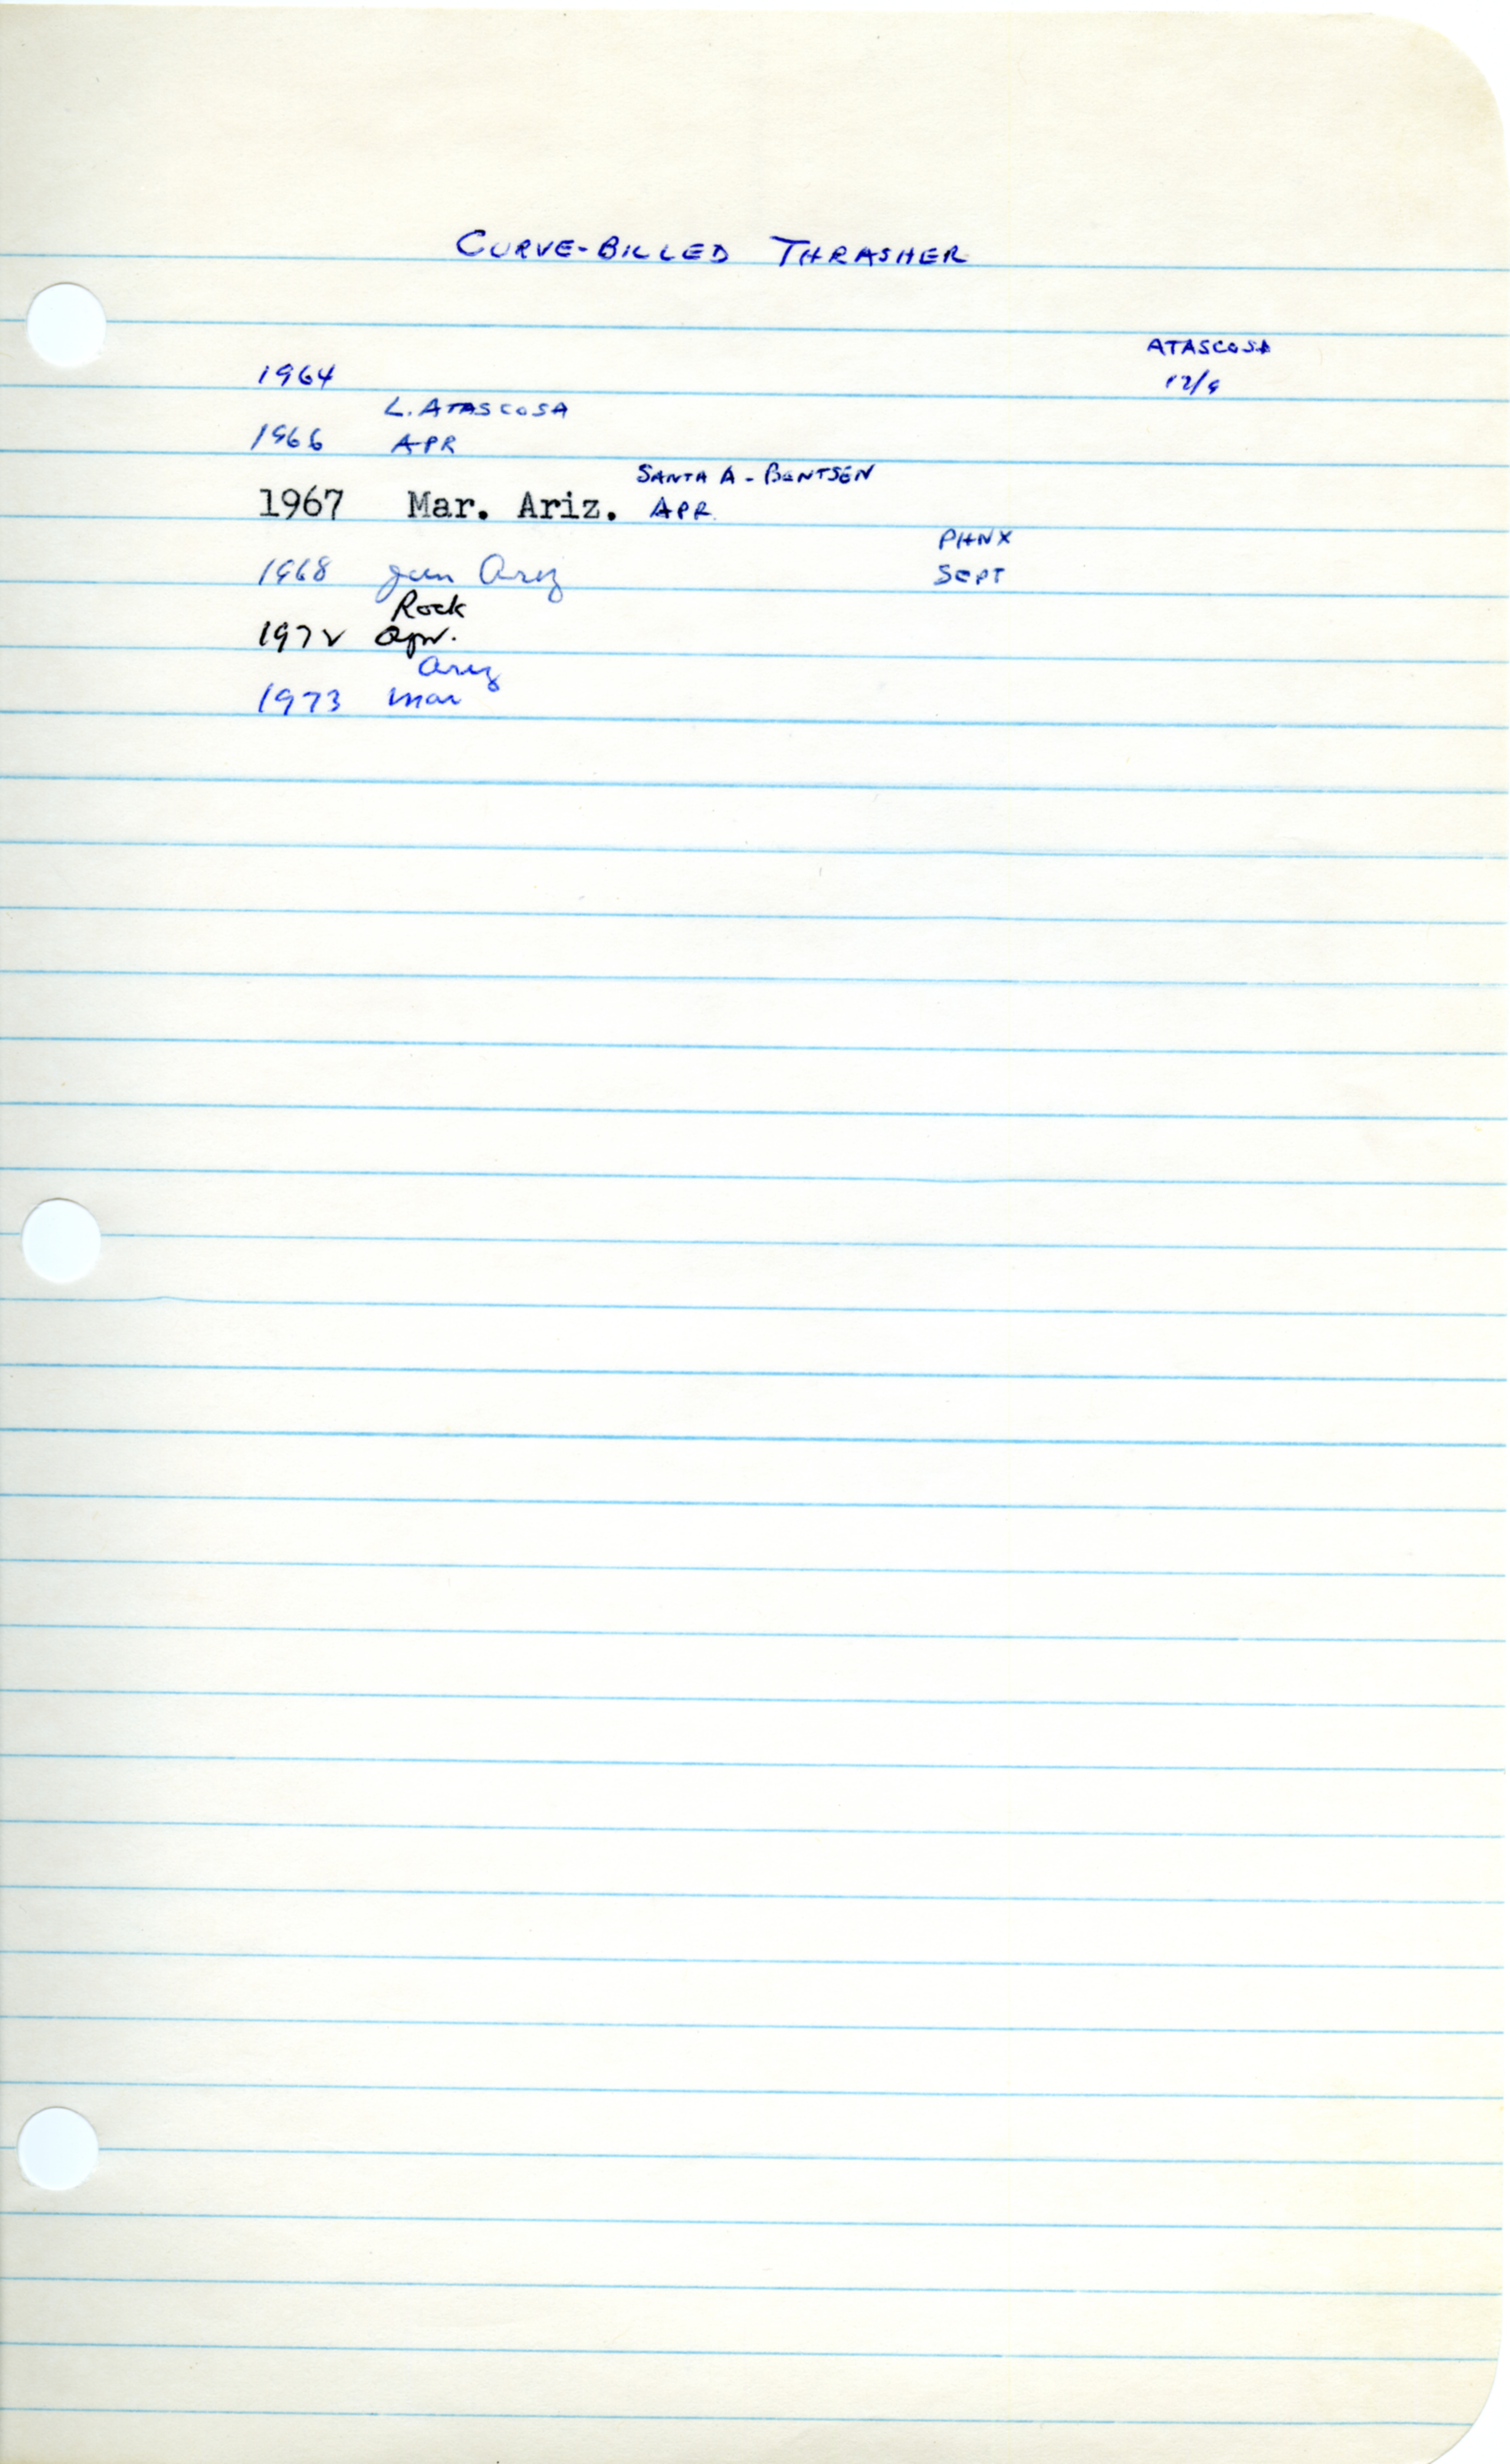 CURVE-BILLED THRASHER
ATASCOSA
1964 12/9
L. ATASCOSA
1966 APR
SANTA A - BENTSEN
1967 Mar. Ariz. APR
PHNX
1968 Jan Ariz SEPT
Rock
1972 Apr.
Ariz
1973 Mar